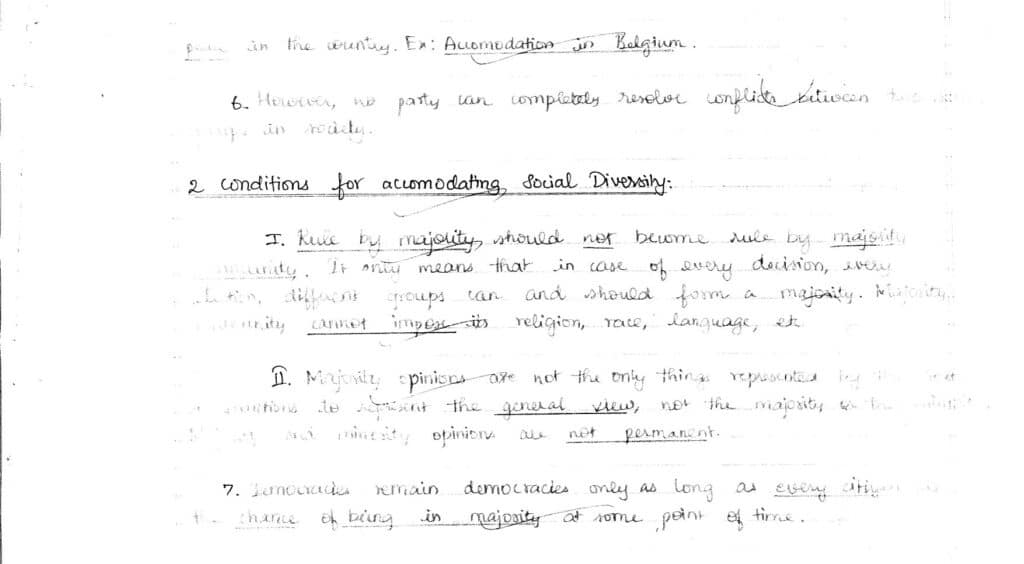 in the country. Ex: Accomodation in Belgium.
6. However, no party can completely resolve conflicts between
in society.
2 conditions for accomodating Social Diversity:
I. Rule by majority should not become rule by majority
. It only means that in case of every decision, every
different groups can and should form a majority. Majority
cannot impose its religion, race, language, etc
II. Majority opinions are not the only things represented by the
to represent the general view, not the majority
and minority opinions are not permanent.
7. Democracies remain democracies only as long as every citizen
chance of being in majority at some point of time.